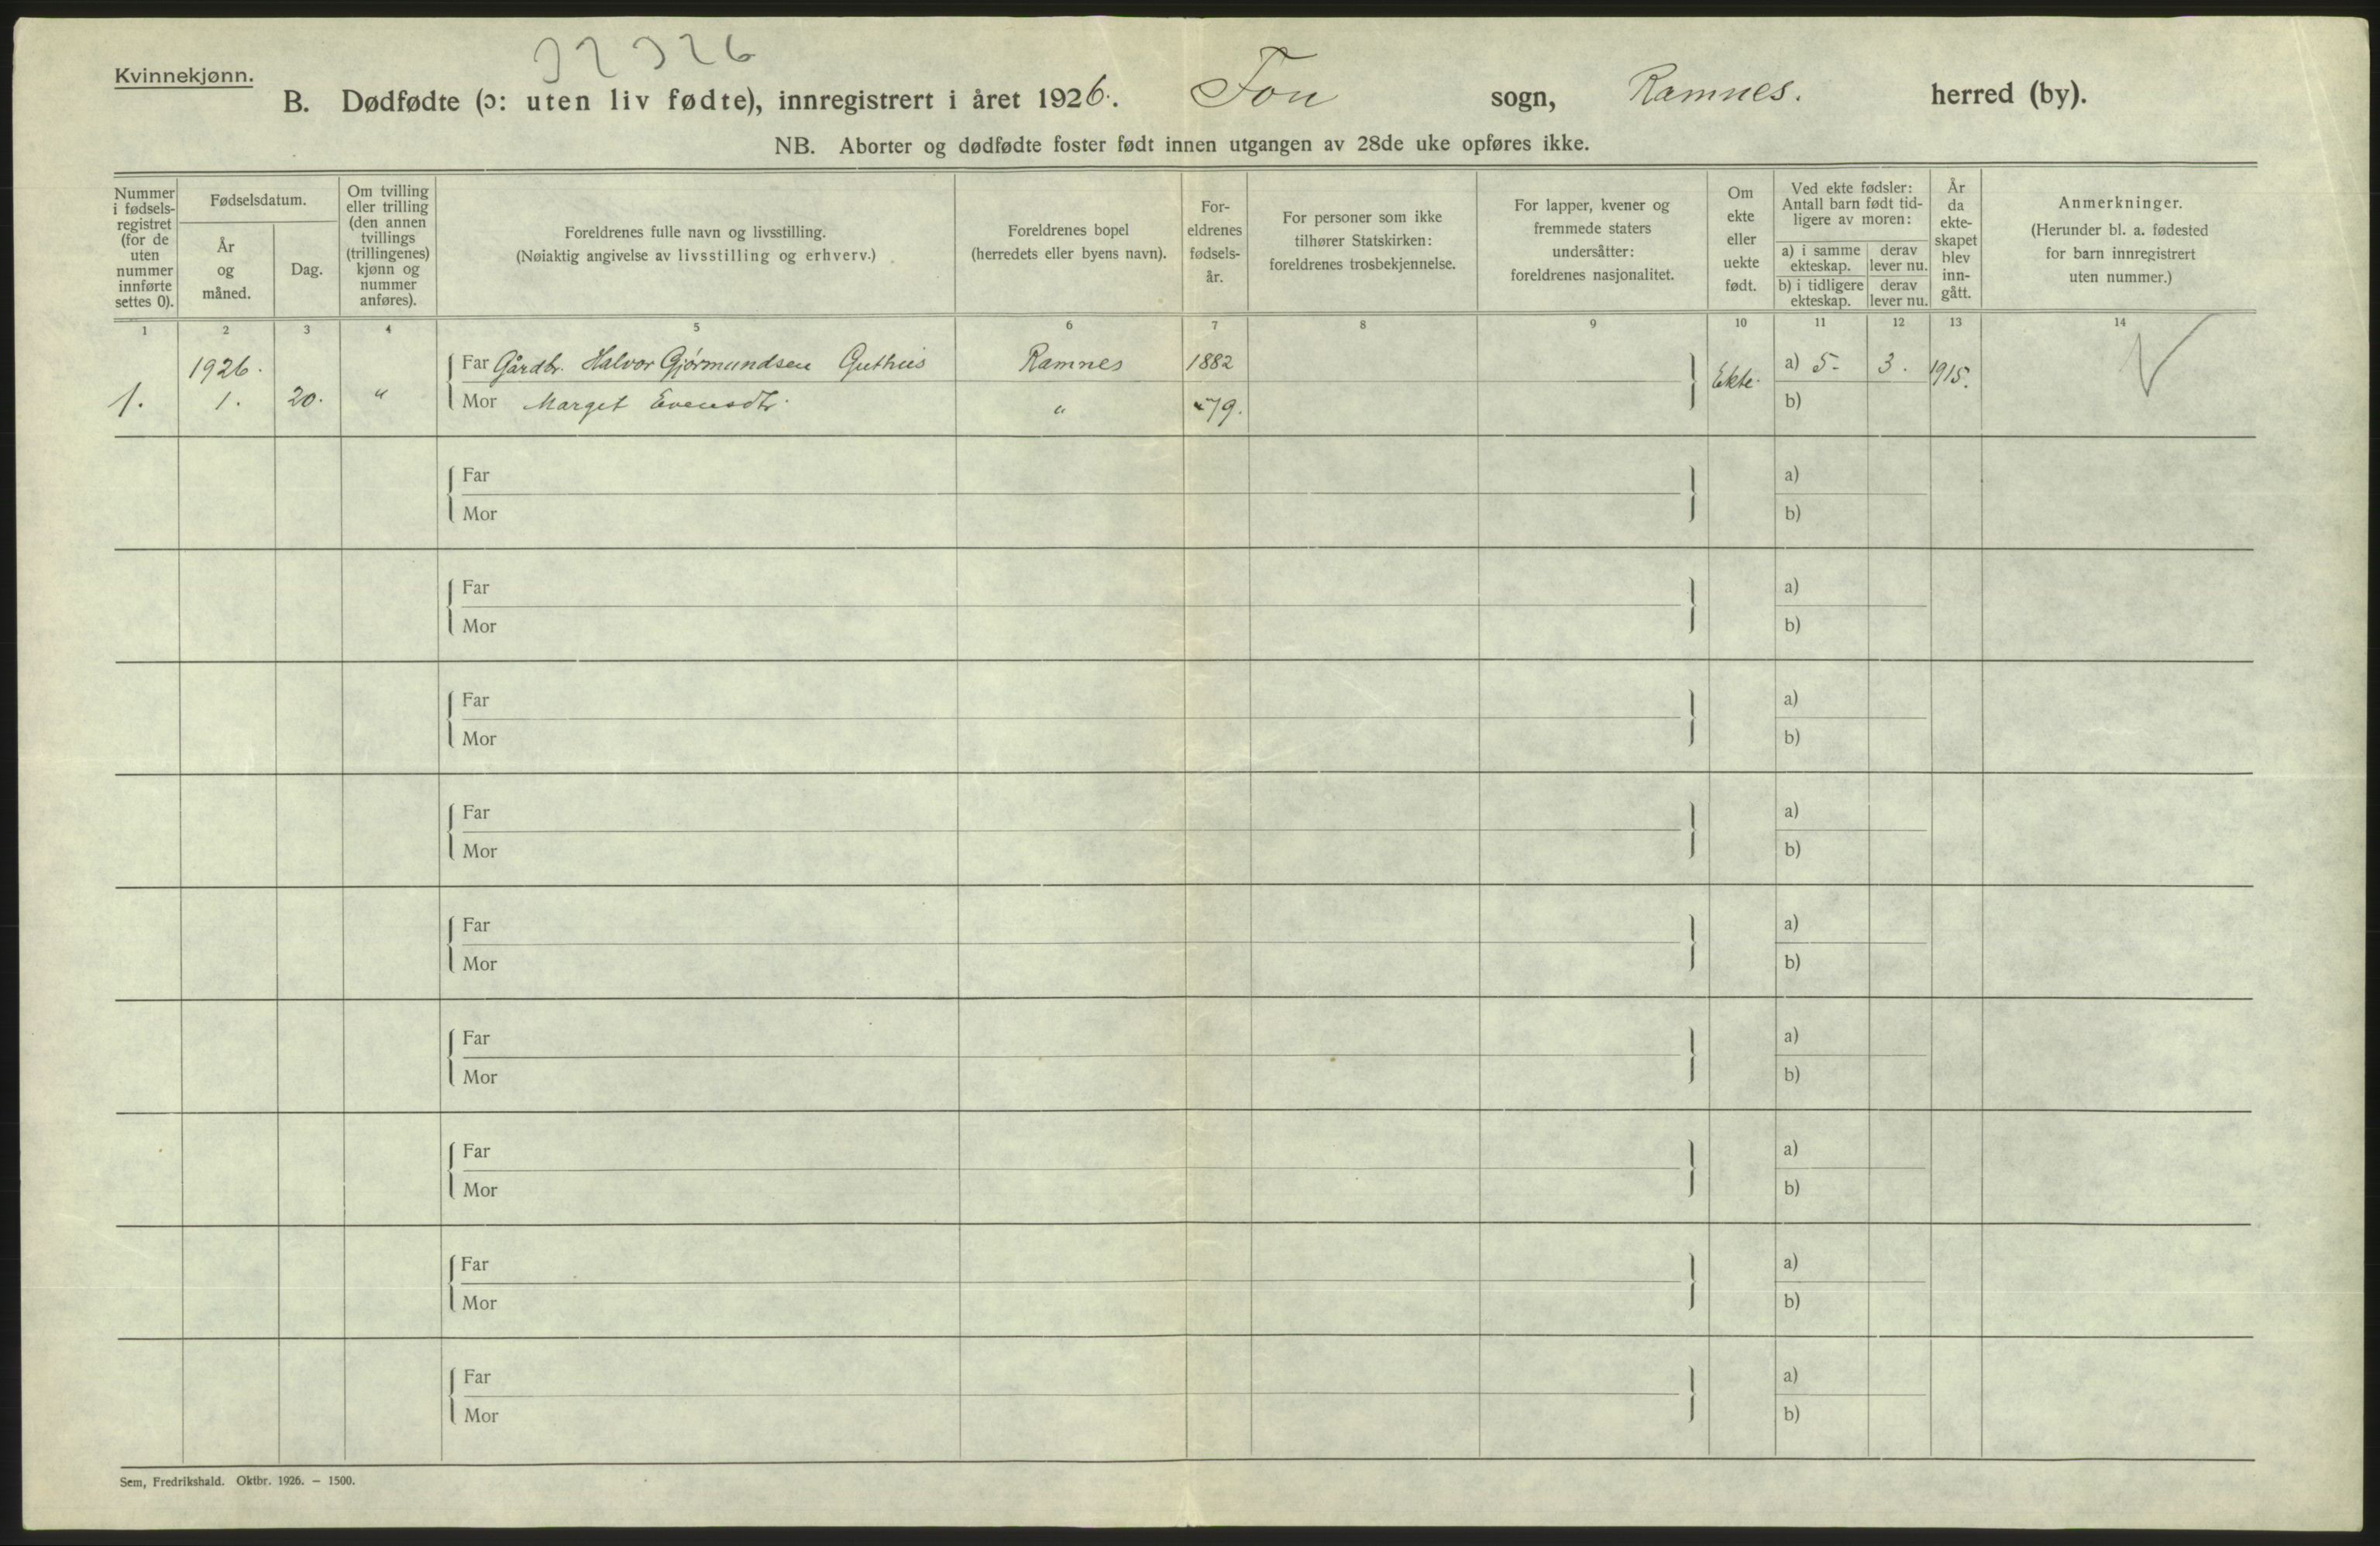 Kvinnekjønn.
B. Dødfødte (ɔ: uten liv fødte), innregistrert i året 1926. Fon sogn, Ramnes. herred (by).
NB. Aborter og dødfødte foster født innen utgangen av 28de uke opføres ikke.
Nummer i fødsels-registret (for de uten nummer innførte settes 0).
Fødselsdatum.
År og måned.
Dag.
Om tvilling eller trilling (den annen tvillings (trillingenes) kjønn og nummer anføres).
Foreldrenes fulle navn og livsstilling.
(Nøiaktig angivelse av livsstilling og erhverv.)
Foreldrenes bopel
(herredets eller byens navn).
For-eldrenes fødsels-år.
For personer som ikke tilhører Statskirken: foreldrenes trosbekjennelse.
For lapper, kvener og fremmede staters undersåtter: foreldrenes nasjonalitet.
Om ekte eller uekte født.
Ved ekte fødsler: Antall barn født tid-ligere av moren:
a) i samme ekteskap.
derav lever nu.
b) i tidligere ekteskap.
derav lever nu.
År da ekte-skapet blev inn-gått.
Anmerkninger.
(Herunder bl. a. fødested for barn innregistrert uten nummer.)
1 2 3 4 5 6 7 8 9 10 11 12 13 14
1926. Far Gårdbr. Halvor Gjørmundsen Guthus Ramnes 1882 Ekte. a) 5. 3. 1915.
1. 1. 20. " Mor Marget Evensdtr. " 79. b)
Far a)
Mor b)
Far a)
Mor b)
Far a)
Mor b)
Far a)
Mor b)
Far a)
Mor b)
Far a)
Mor b)
Far a)
Mor b)
Far a)
Mor b)
Far a)
Mor b)
Sem, Fredrikshald. Oktbr. 1926. — 1500.